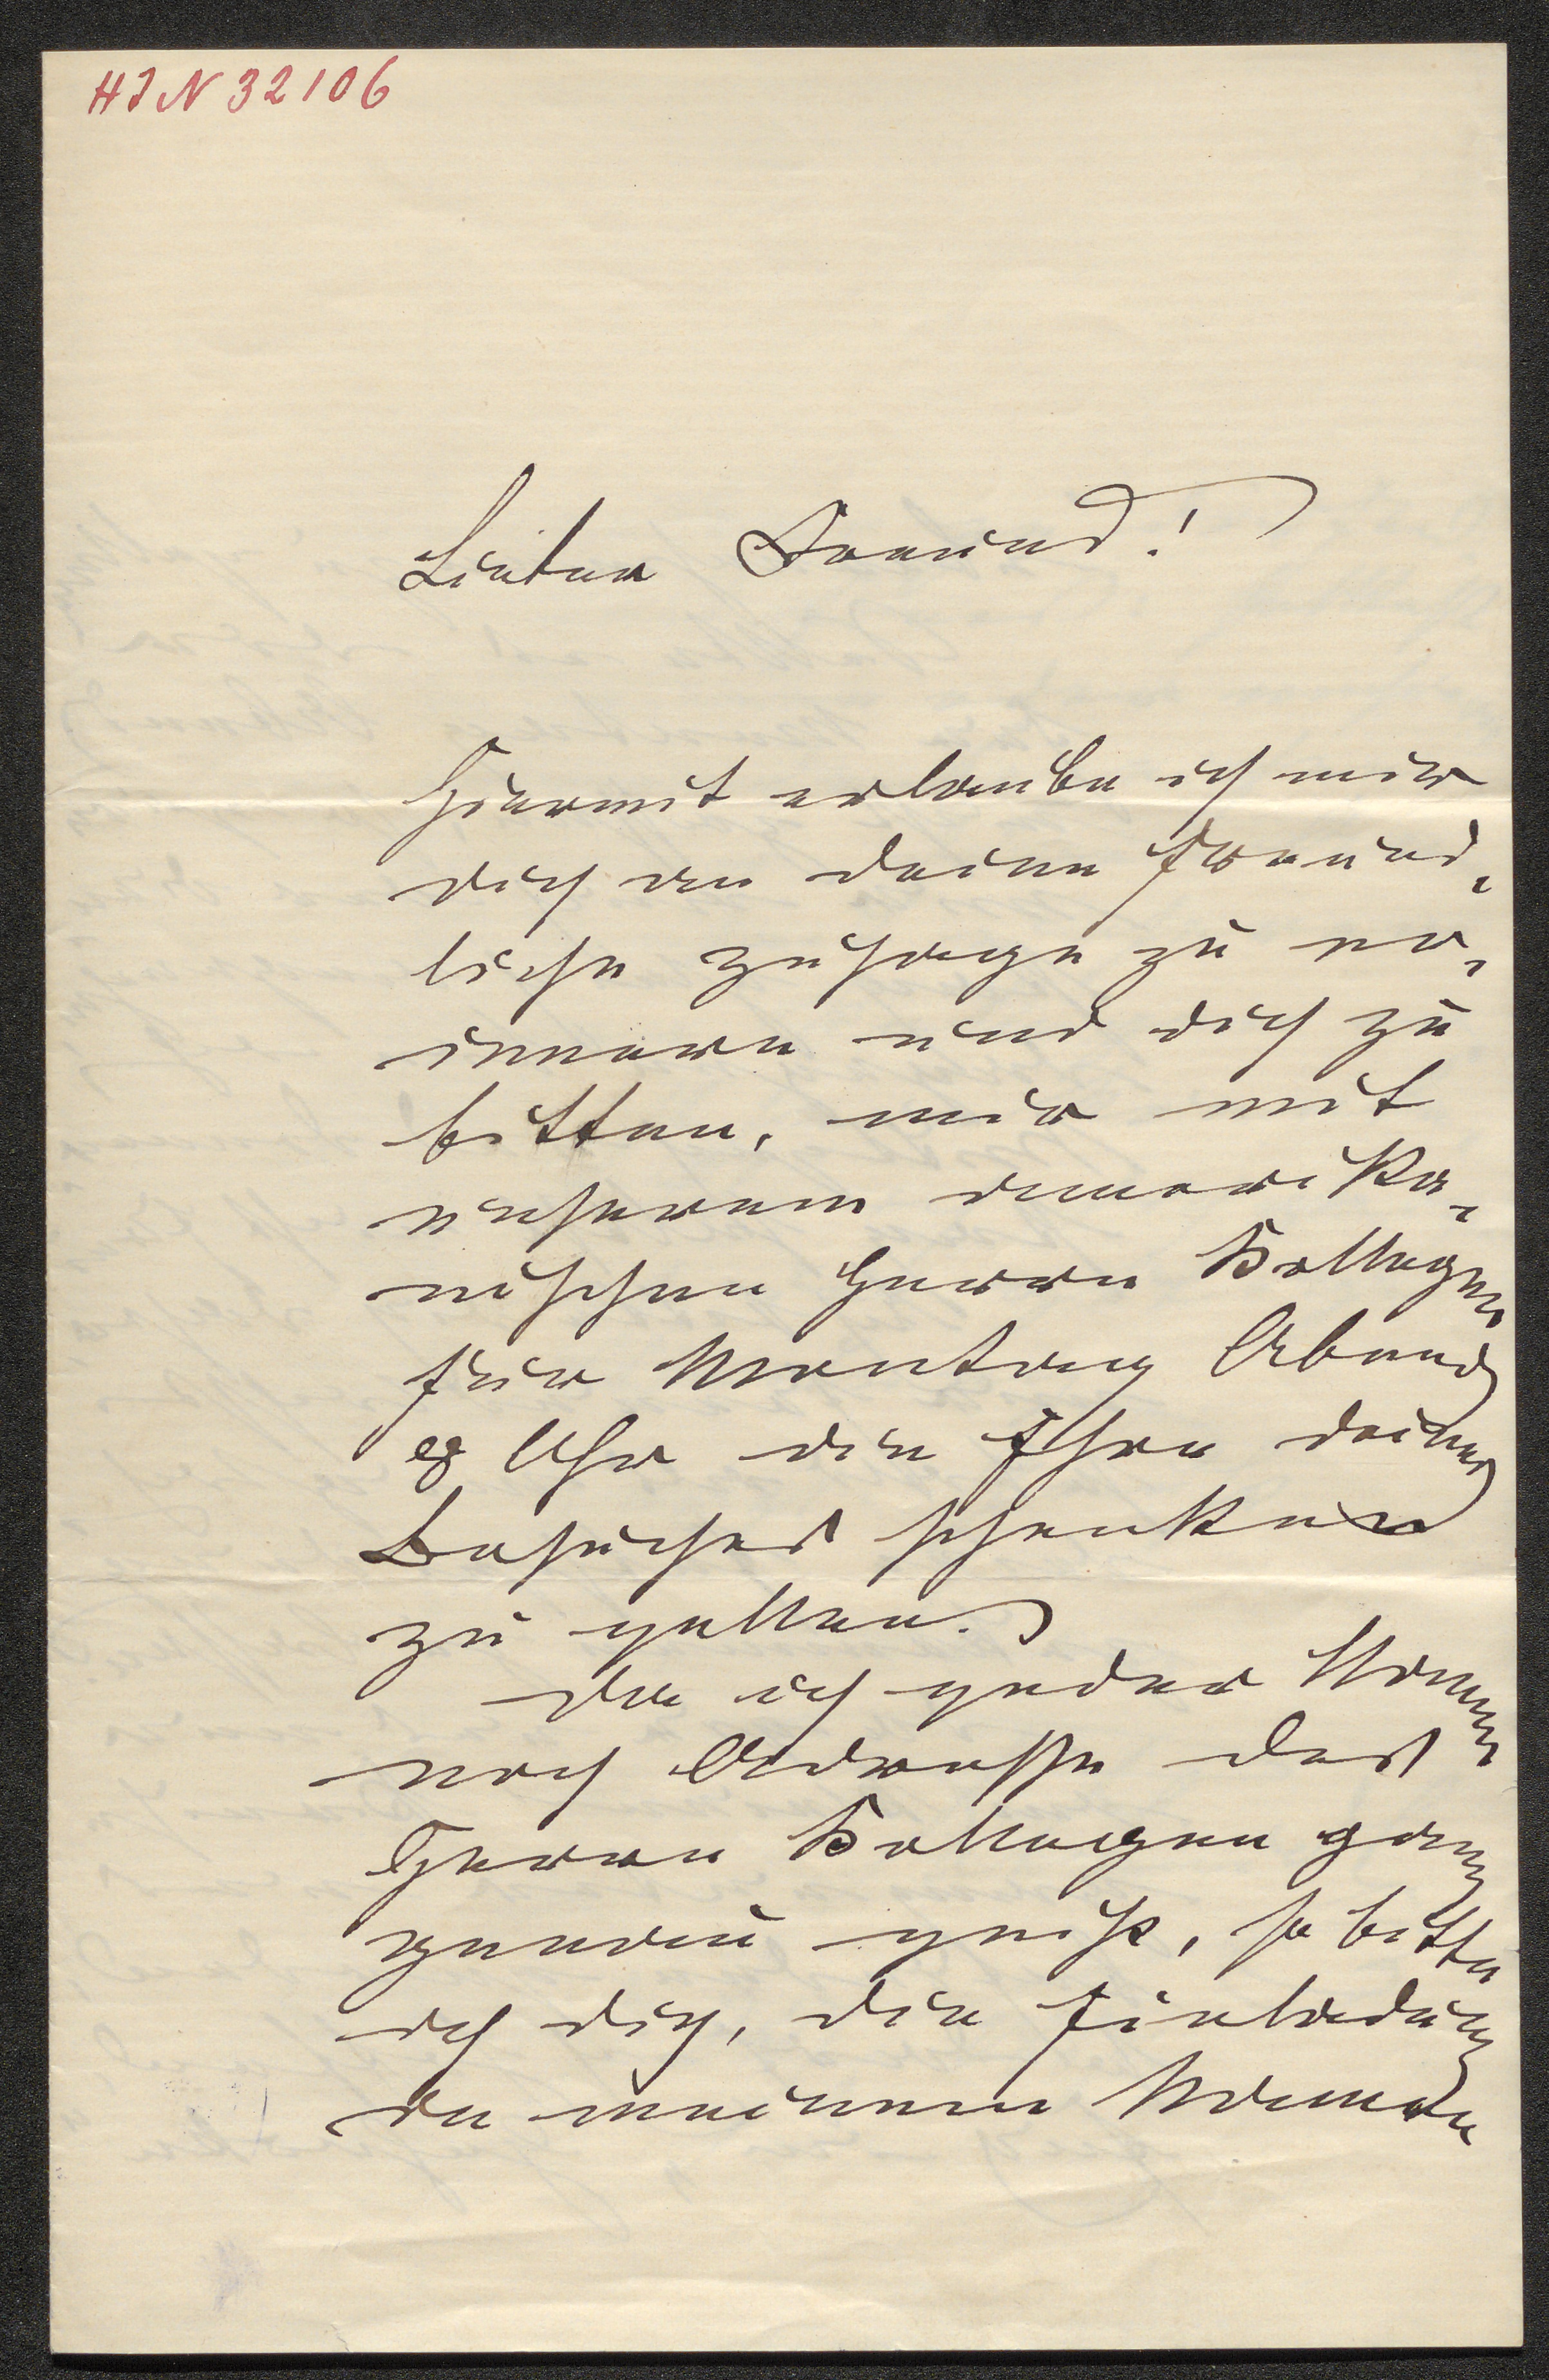 HIN 32106
Lieber Freund!
Hiermit erlaube ich mir
dich an deine freund-
liche Zusage zu er-
innern und dich zu
bitten, mir mit
unserem amerika-
nischen Herrn Kollegen
für Montag Abend
8 Uhr die Ehre deines
Besuches schenken
zu wollen.
Da ich weder Namen
noch Adresse des
Herrn Kollegen ganz
genau weiß, so bitte
ich dich, die Einladung
in meinem Namen